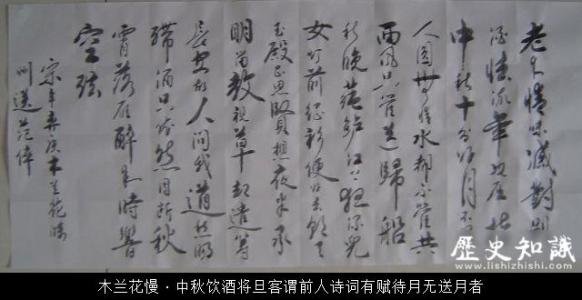 老来情味减對别
酒怯流年况屈指
中秋十分好月不照
人圆無情水都不管共
西風只管送歸船
秋晚莼鲈江上夜深兒
女灯前征衫便好去朝天
玉殿正思賢想夜半承
明留教視草却遣筹
長安故人问我道愁腸
殢酒只依然目断秋
霄落雁醉来時響
空弦
宋辛弃疾木兰花慢
州送范倅
歷史知識
www.lishizhishi.com
木兰花慢·中秋饮酒将旦客谓前人诗词有赋待月无送月者